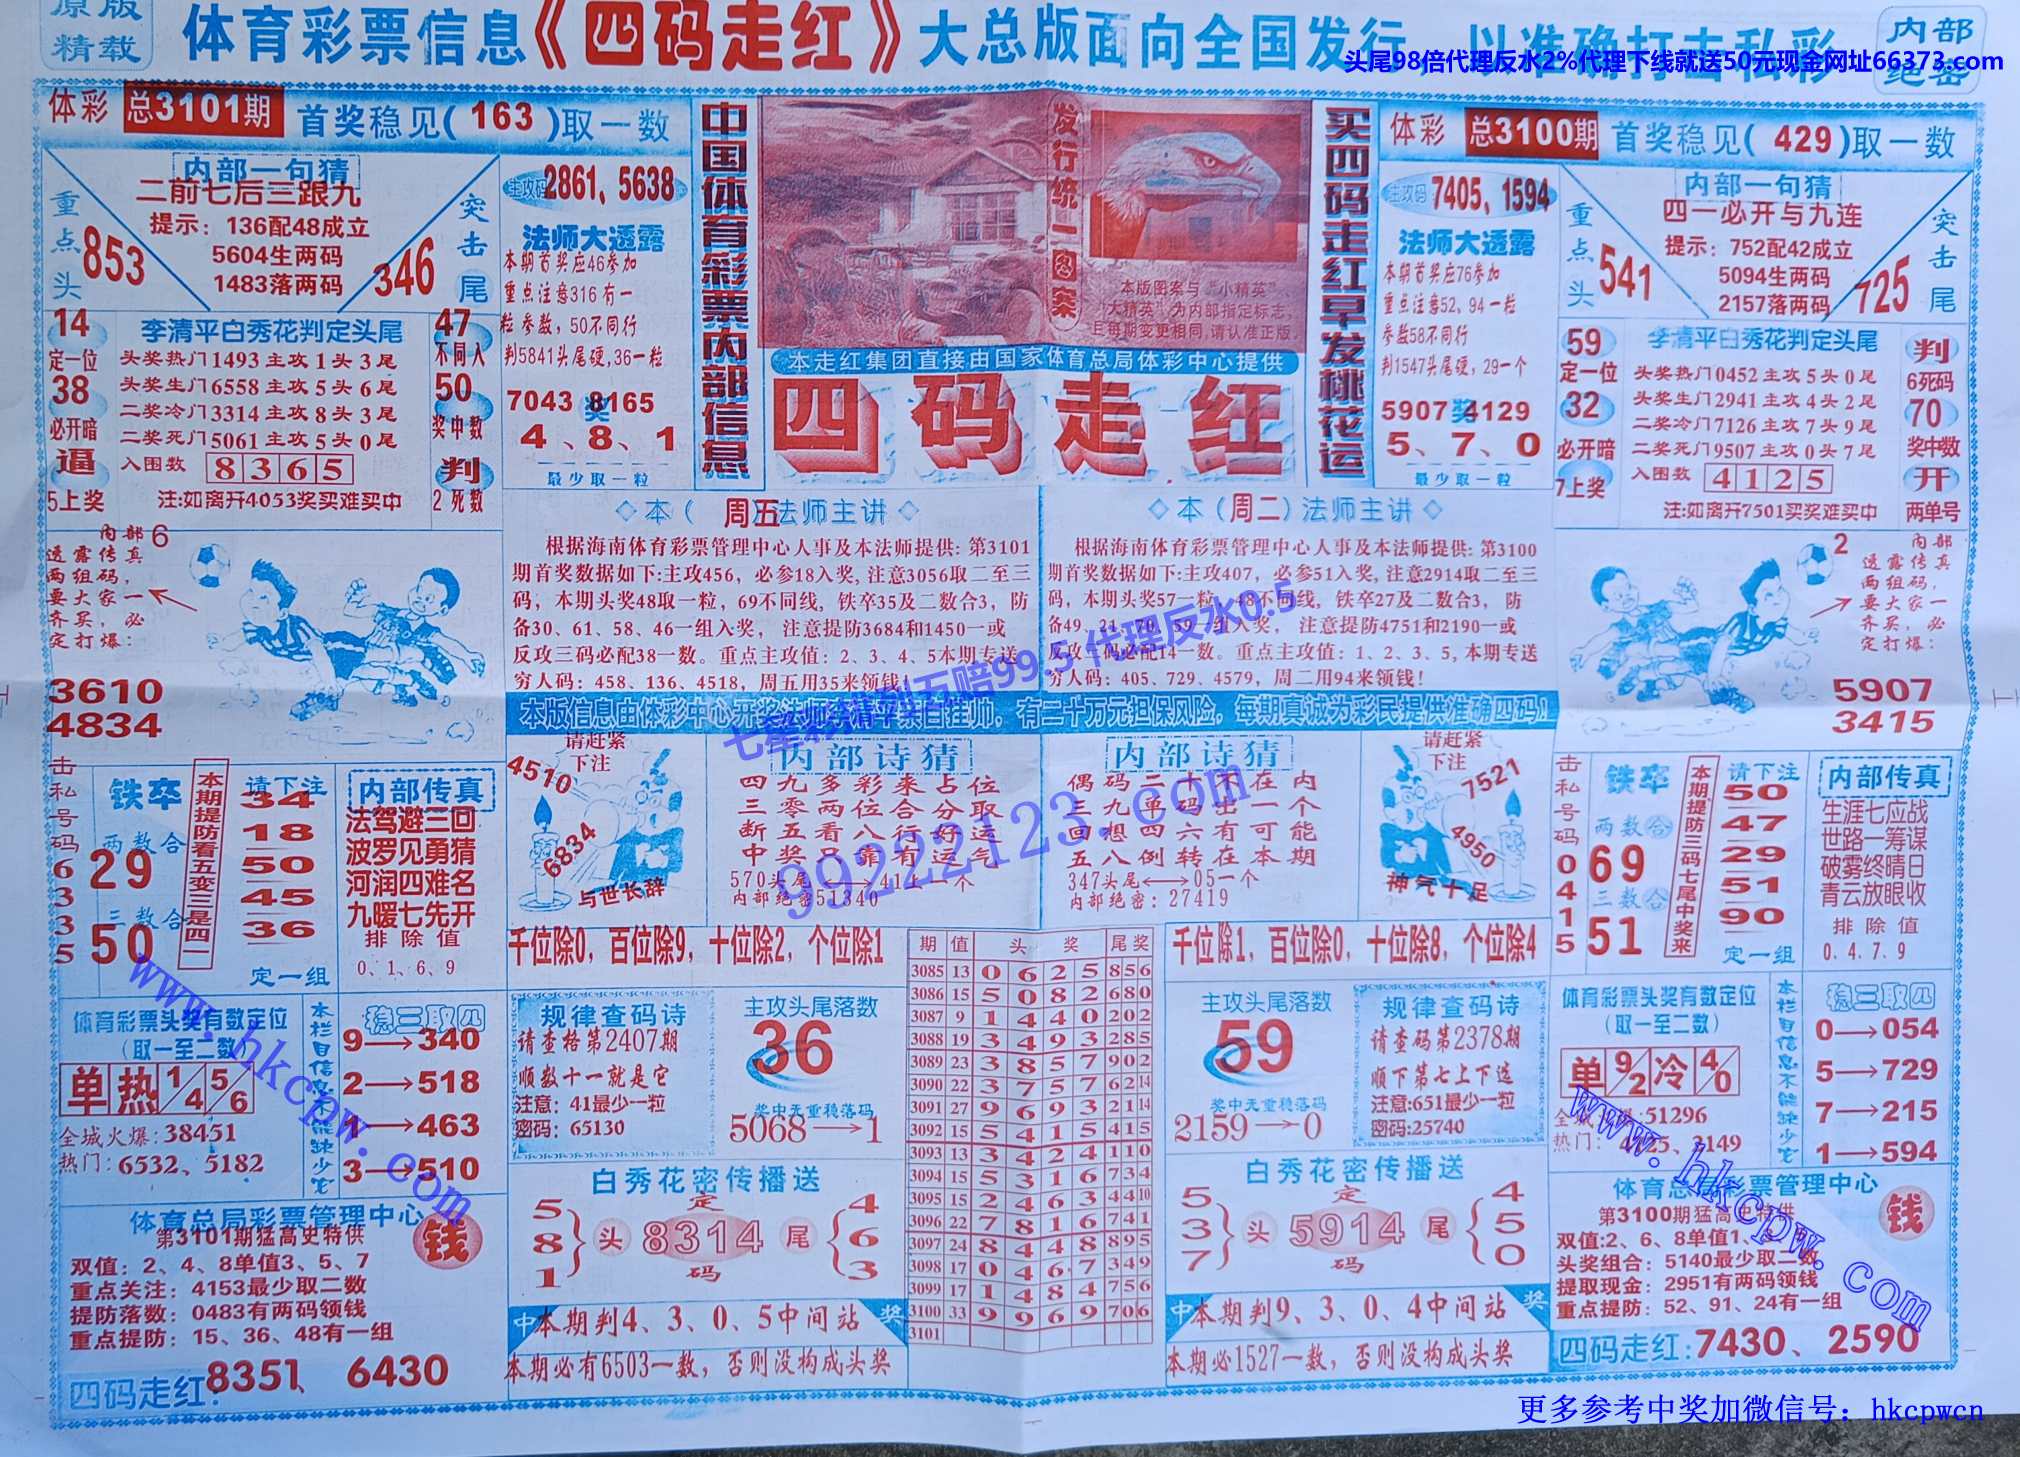 原版
精载
体育彩票信息《四码走红》大总版面向全国发行，以准确打击私彩
内部
绝密
头尾98倍代理反水2%代理下线就送50元现金网址66373.com
体彩 总3101期 首奖稳见(163)取一数
内部一句猜
二前七后三跟九
提示：136配48成立
5604生两码
1483落两码
重点头
853
突击尾
346
主攻码 2861、5638
法师大透露
本期首奖应46参加
重点注意316有一
粒参数，50不同行
判5841头尾硬，36一粒
7043奖8165
4、8、1
最少取一粒
14
定一位
38
必开暗
逼
5上奖
李清平白秀花判定头尾
头奖热门1493主攻1头3尾
头奖生门6558主攻5头6尾
二奖冷门3314主攻8头3尾
二奖死门5061主攻5头0尾
入围数 8365
注:如离开4053奖买难买中
47
不同人
50
奖中数
判
2死数
中国体育彩票内部信息
发行统一图案
本版图案与“小精英”
“大精英”为内部指定标志，
且每期变更相同，请认准正版
本走红集团直接由国家体育总局体彩中心提供
四码走红
买四码走红早发桃花运
体彩 总3100期 首奖稳见(429)取一数
主攻码 7405、1594
法师大透露
本期首奖应76参加
重点注意52、94一粒
参数58不同行
判1547头尾硬，29一个
5907奖4129
5、7、0
最少取一粒
内部一句猜
四一必开与九连
提示：752配42成立
5094生两码
2157落两码
重点头
541
突击尾
725
59
定一位
32
必开暗
7上奖
李清平白秀花判定头尾
头奖热门0452主攻5头0尾
头奖生门2941主攻4头2尾
二奖冷门7126主攻7头9尾
二奖死门9507主攻0头7尾
入围数 4125
注:如离开7501买奖难买中
判
6死码
70
奖中数
开
两单号
内部
透露传真
两组码，
要大家一
齐买，必
定打爆：
6
3610
4834
◇本(周五)法师主讲◇
根据海南体育彩票管理中心人事及本法师提供: 第3101
期首奖数据如下:主攻456，必参18入奖，注意3056取二至三
码，本期头奖48取一粒，69不同线，铁卒35及二数合3，防
备30、61、58、46一组入奖，注意提防3684和1450一或
反攻三码必配38一数。重点主攻值：2、3、4、5本期专送
穷人码：458、136、4518，周五用35来领钱！
◇本(周二)法师主讲◇
根据海南体育彩票管理中心人事及本法师提供: 第3100
期首奖数据如下:主攻407，必参51入奖，注意2914取二至三
码，本期头奖57一粒，48不同线，铁卒27及二数合3，防
备49、21、70、59一组入奖，注意提防4751和2190一或
反攻三码必配14一数。重点主攻值：1、2、3、5，本期专送
穷人码：405、729、4579，周二用94来领钱！
内部
透露传真
两组码，
要大家一
齐买，必
定打爆：
2
5907
3415
七星彩猜列五赔99.5 代理反水0.5
99222123.com
击私号码06335
铁卒
两数合
29
三数合
50
本期提防看五变三是四一
请下注
34
18
50
45
36
定一组
内部传真
法驾避三回
波罗见勇猜
河润四难名
九暖七先开
排除值
0、1、6、9
请赶紧
下注
4510
6834
与世长辞
内部诗猜
四九多彩来占位
三零两位合分取
断五看八行好运
中奖只靠有运气
570头尾⟷414一个
内部绝密51340
内部诗猜
偶码二九不在内
三九单码出一个
回想四六有可能
五八倒转在本期
347头尾⟷05一个
内部绝密：27419
请赶紧
下注
7521
4950
神气十足
击私号码0415
铁卒
两数合
69
三数合
51
本期提防三码七尾中奖来
请下注
50
47
29
51
90
定一组
内部传真
生涯七应战
世路一筹谋
破雾终晴日
青云放眼收
排除值
0、4、7、9
千位除0，百位除9，十位除2，个位除1
千位除1，百位除0，十位除8，个位除4
体育彩票头奖有数定位
(取一至二数)
单 热 1/4 5/6
全城火爆：38451
热门：6532、5182
本栏目信息不能缺少它
稳三取四
9→340
2→518
1→463
3→510
规律查码诗
请查格第2407期
顺数十一就是它
注意：41最少一粒
密码：65130
主攻头尾落数
36
奖中无重稳落码
5068→1
期 值 头 奖 尾奖
3085 13 0 6 2 5 8 5 6
3086 15 5 0 8 2 6 8 0
3087 9 1 4 4 0 2 0 2
3088 19 3 4 9 3 2 8 5
3089 23 3 8 5 7 9 0 2
3090 22 3 7 5 7 6 2 14
3091 27 9 6 9 3 2 1 14
3092 15 5 4 1 5 4 1 5
3093 13 3 4 2 4 1 1 0
3094 15 5 3 1 6 7 3 4
3095 15 2 4 6 3 4 4 10
3096 22 7 8 1 6 7 4 1
3097 24 8 4 4 8 8 9 5
3098 17 0 4 6 7 3 4 9
3099 17 1 4 8 4 7 5 6
3100 33 9 9 6 9 7 0 6
3101
主攻头尾落数
59
奖中无重稳落码
2159→0
规律查码诗
请查码第2378期
顺下第七上下选
注意:651最少一粒
密码:25740
体育彩票头奖有数定位
(取一至二数)
单 9/2 冷 4/0
51296
3149
本栏目信息不能缺少它
稳三取四
0→054
5→729
7→215
1→594
白秀花密传播送
5
8
1
头
定
8314
码
尾
4
6
3
中 本期判4、3、0、5中间站 奖
本期必有6503一数，否则没构成头奖
白秀花密传播送
5
3
7
头
定
5914
码
尾
4
5
0
中 本期判9、3、0、4中间站 奖
本期必1527一数，否则没构成头奖
体育总局彩票管理中心
第3101期猛高史特供
钱
双值：2、4、8单值3、5、7
重点关注：4153最少取二数
提防落数：0483有两码领钱
重点提防：15、36、48有一组
四码走红：8351、6430
体育总局彩票管理中心
第3100期猛高史特供
钱
双值:2、6、8单值1、
头奖组合：5140最少取二数
提取现金：2951有两码领钱
重点提防：52、91、24有一组
四码走红:7430、2590
www.hkcpw.com
www.hkcpw.com
更多参考中奖加微信号：hkcpwcn